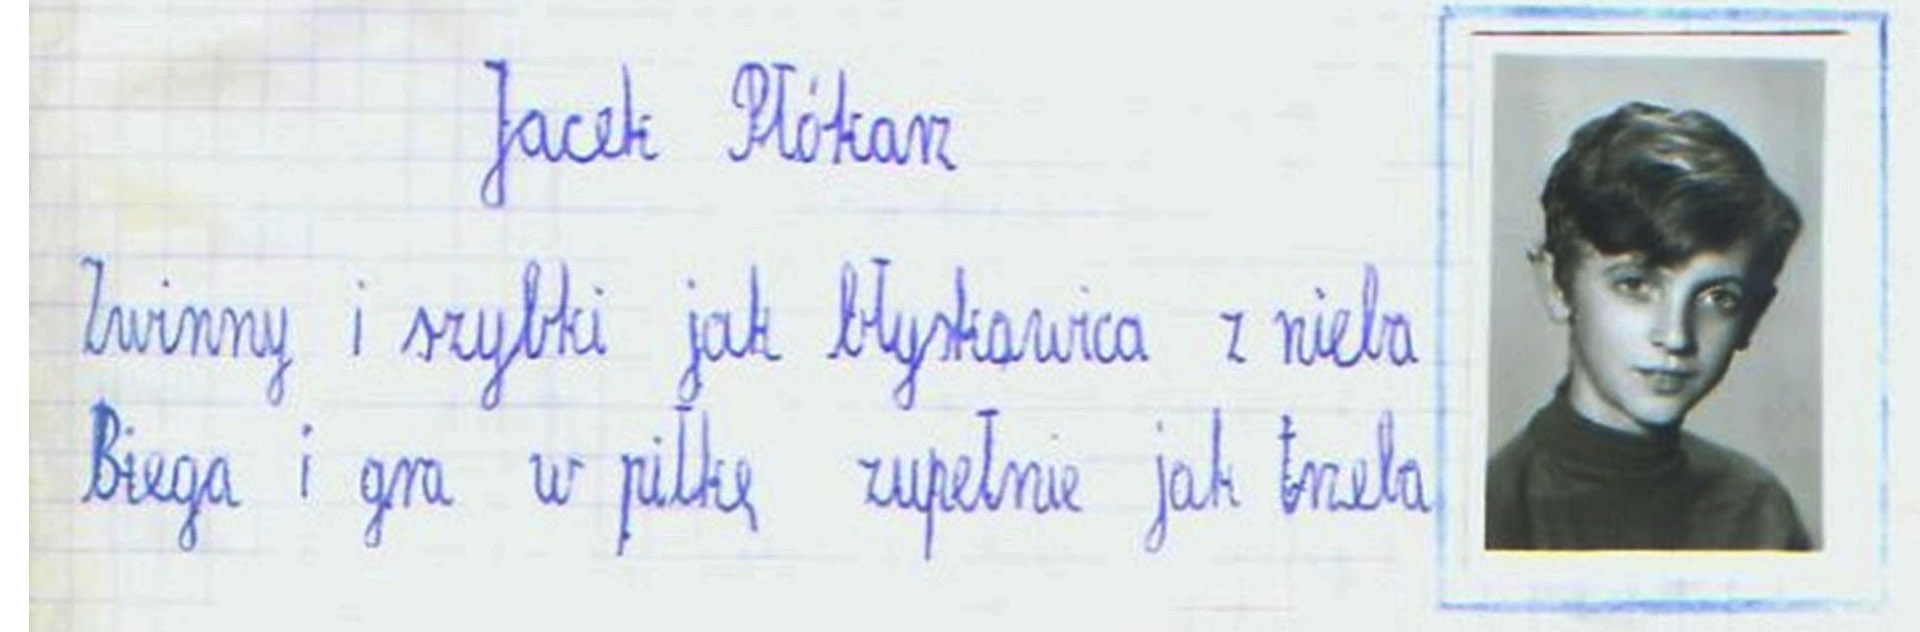 Jacek Płókarz
Zwinny i szybki jak błyskawica z nieba
Biega i gra w piłkę zupełnie jak trzeba